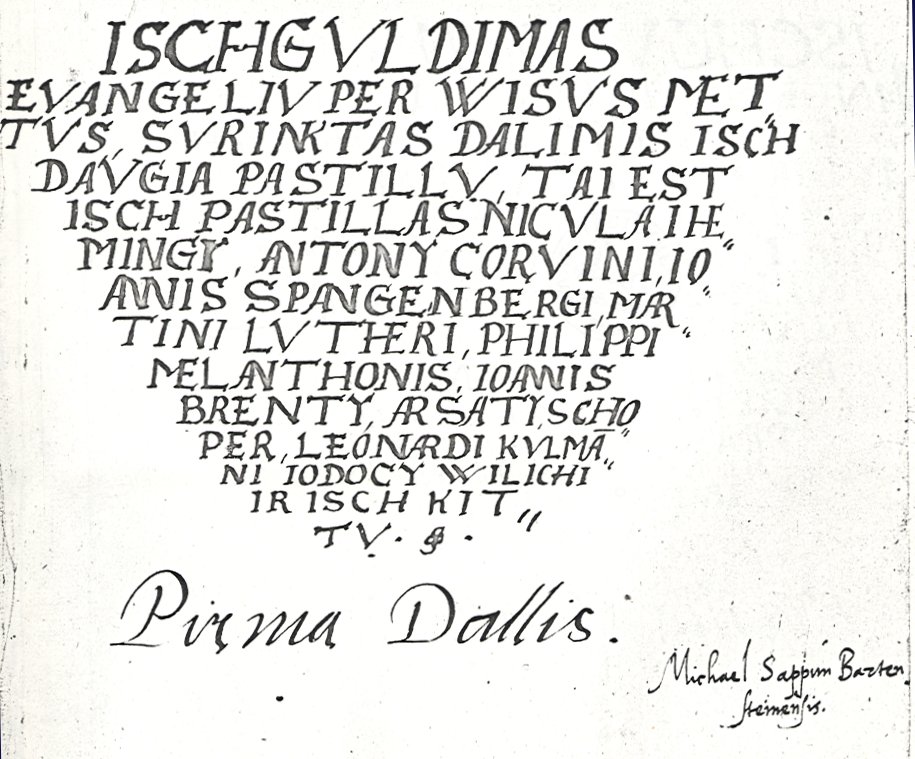 ISCHGVLDIMAS
EVANGELIV PER WISVS MET"
TVS, SVRINKTAS DALIMIS ISCH
DAVGIA PASTILLV, TAI EST
ISCH PASTILLAS NICVLAI HE"
MINGY, ANTONY CORVINI, IO"
ANNIS SPANGENBERGI, MAR"
TINI LVTHERI, PHILIPPI"
MELANTHONIS, IOANNIS
BRENTY, ARSATY, SCHO
PER, LEONARDI KVLMĀ"
NI IODOCY WILICHI"
IR ISCH KIT"
TV.
Pirma Dallis.
Michael Sappun Barten
steinensis.